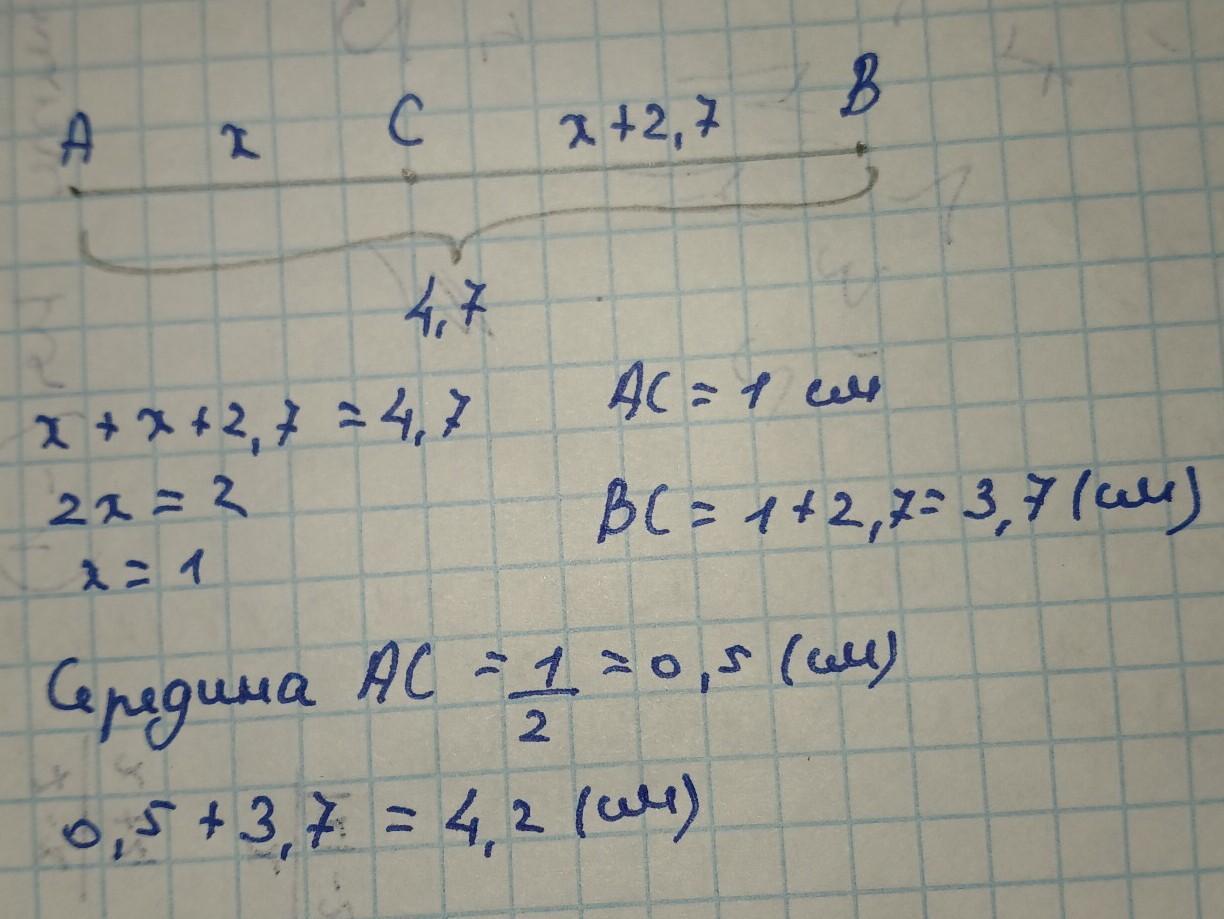 A x C x+2,7 B
4,7
x + x + 2,7 = 4,7
2x = 2
x = 1
AC = 1 см
BC = 1 + 2,7 = 3,7 (см)
Середина AC = 1/2 = 0,5 (см)
0,5 + 3,7 = 4,2 (см)